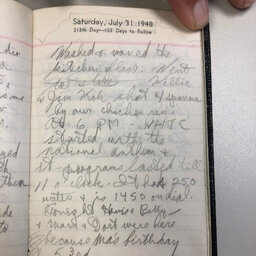 Saturday, July 31 1948
213th Day—153 Days to Follow
Washed & waxed the
kitchen floor. Went
for a Willie
& Jim shot 4 sparrows
by our chicken run.
At 6 P.M. — WHTC
started with the
national anthem &
it programs lasted till
11 o'clock. It has 250
watts & is 1450 on dial.
Tonight & Betty —
& Mom & Dort were here
because Ma's birthday
53rd